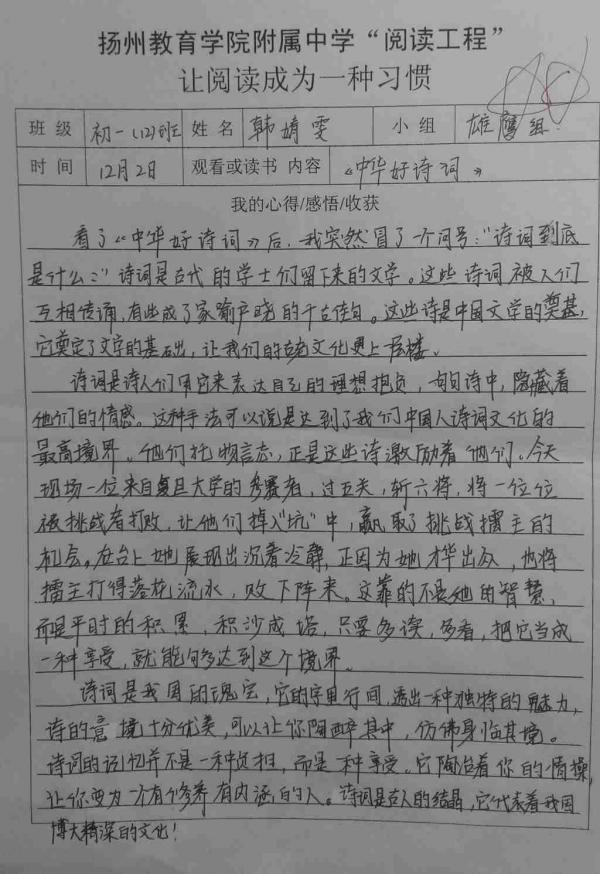 扬州教育学院附属中学“阅读工程”
让阅读成为一种习惯
班 级 初一(12)班 姓 名 韩婧雯 小 组 雄鹰组
时 间 12月2日 观看或读书 内容 《中华好诗词》
我的心得/感悟/收获
看了《中华好诗词》后，我突然冒了一个问号：“诗词到底
是什么？”诗词是古代的学士们留下来的文学。这些诗词被人们
互相传诵，有些成了家喻户晓的千古佳句。这些诗是中国文学的奠基，
它奠定了文学的基础，让我们的古老文化更上一层楼。
诗词是诗人们用它来表达自己的理想抱负，句句诗中，隐藏着
他们的情感。这种手法可以说是达到了我们中国人诗词文化的
最高境界。他们托物言志，正是这些诗激励着他们。今天
现场一位来自复旦大学的参赛者，过五关，斩六将，将一位位
被挑战者打败，让他们掉入“坑”中，赢取了挑战擂主的
机会。在台上她展现出沉着冷静，正因为她才华出众，也将
擂主打得落花流水，败下阵来。这靠的不是她的智慧，
而是平时的积累，积沙成塔，只要多读，多看，把它当成
一种享受，就能够多达到这个境界。
诗词是我国的瑰宝，它的字里行间，透出一种独特的魅力，
诗的意境十分优美，可以让你陶醉其中，仿佛身临其境。
诗词的记忆并不是一种负担，而是一种享受。它陶冶着你的情操，
让你变为一个有修养有内涵的人。诗词是古人的结晶，它代表着我国
博大精深的文化！